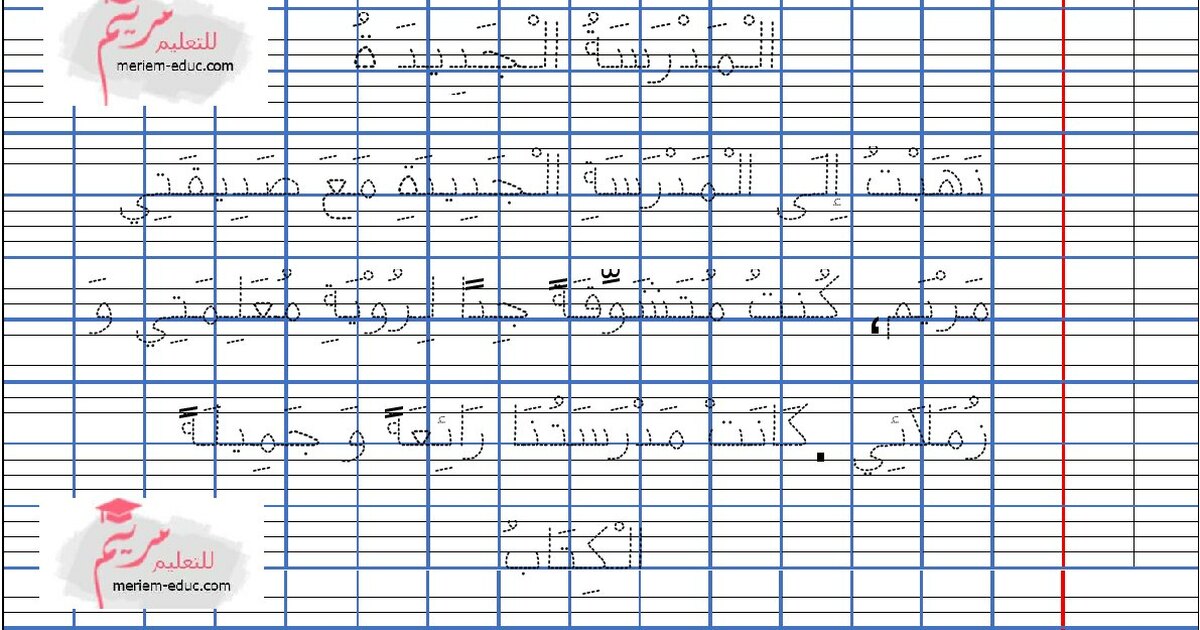 مريم للتعليم
meriem-educ.com
الْمَدْرَسَةُ الْجَدِيدَةُ
ذَهَبْتُ إِلَى الْمَدْرَسَةِ الْجَدِيدَةِ مَعَ صَدِيقَتِي
مَرْيَم، كُنتُ مُتَشَوِّقَةً جِدًا لِرُؤْيَةِ مُعَلِمَتِي وَ
زُمَلَائِي . كَانَتْ مَدْرَسَتُنَا رَائِعَةً وَ جَمِيلَةً
الْكِتَابُ
مريم للتعليم
meriem-educ.com